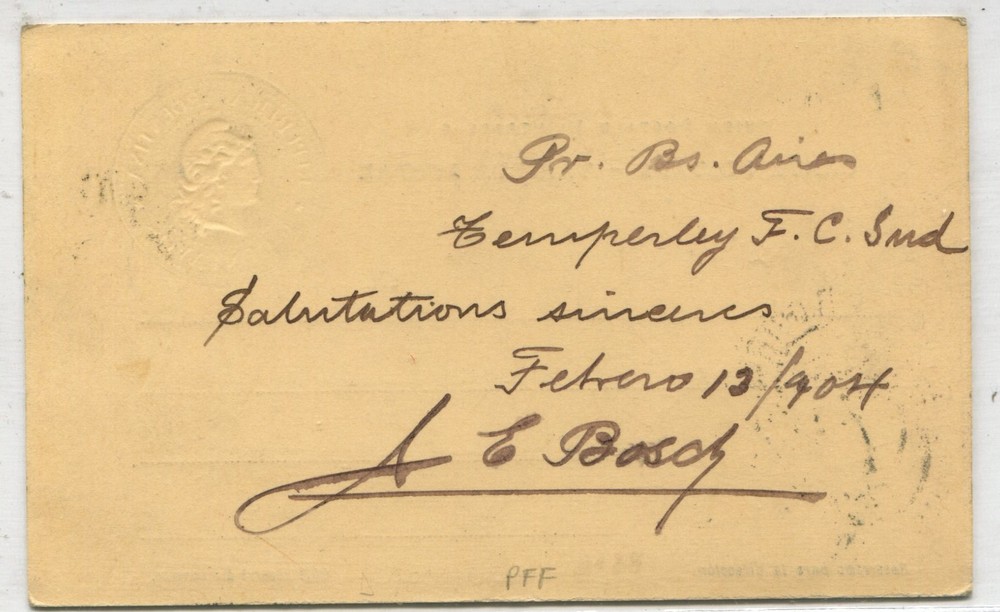 Pr. Bs. Aires
Temperley F. C. Sud
Salutations sinceres
Febrero 13/904
A E Bosch
PFF